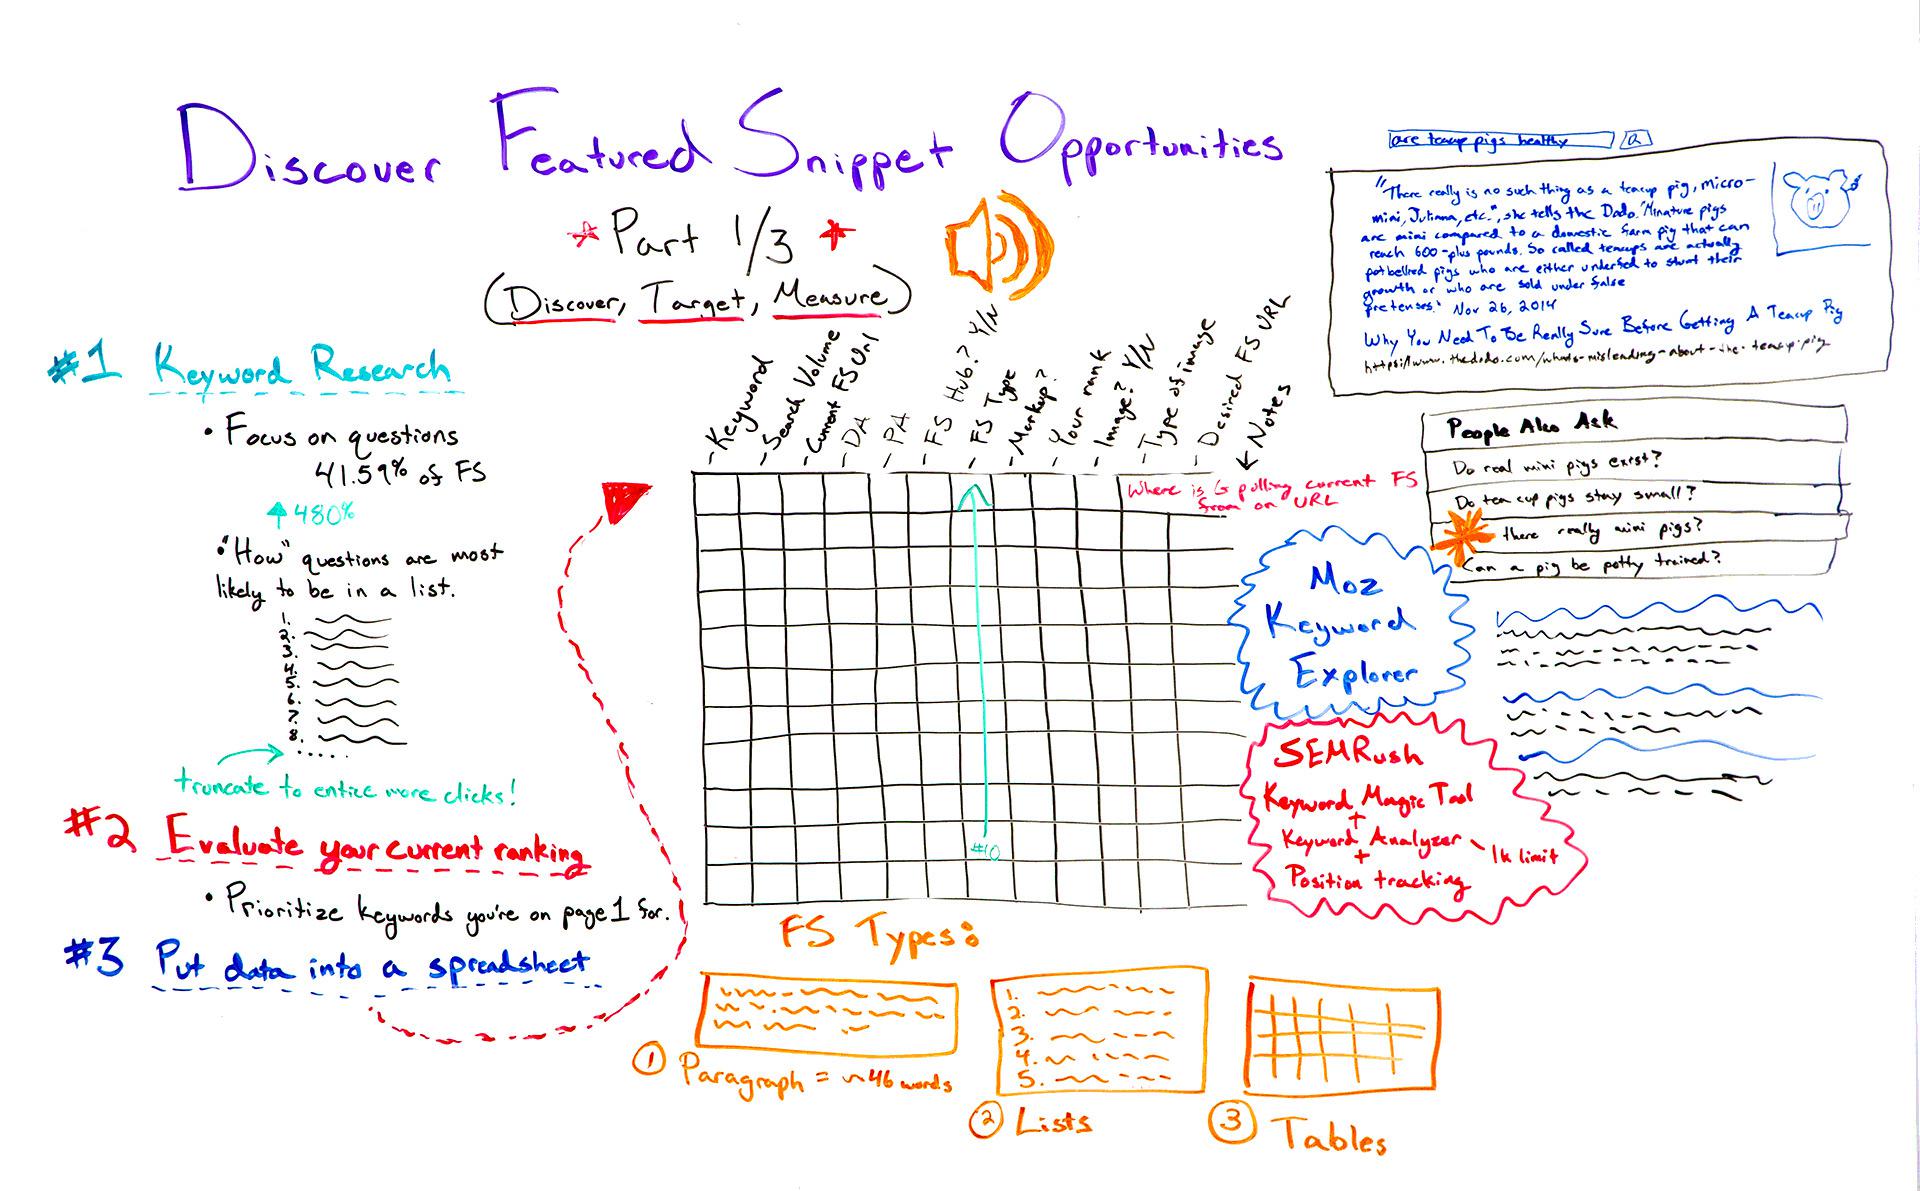 Discover Featured Snippet Opportunities
Part 1/3
(Discover, Target, Measure)
#1 Keyword Research
• Focus on questions
41.59% of FS
480%
• "How" questions are most
likely to be in a list.
1.
2.
3.
4.
5.
6.
7.
8.
.....
truncate to entice more clicks!
#2 Evaluate your current ranking
• Prioritize keywords you're on page 1 for.
#3 Put data into a spreadsheet
- Keyword
- Search Volume
- Current FS Url
- DA
- PA
- FS Hub? Y/N
- FS Type
- Markup?
- Your rank
- Image? Y/N
- Type of image
- Desired FS URL
Notes
Where is G pulling current FS
from on URL
#10
Moz
Keyword
Explorer
SEMRush
Keyword Magic Tool
+
Keyword Analyzer - 1k limit
+
Position tracking
FS Types:
1 Paragraph = ~46 words
1.
2.
3.
4.
5.
2 Lists
3 Tables
are teacup pigs healthy
"There really is no such thing as a teacup pig, micro-
mini, Juliana, etc.", she tells the Dodo. "Minature pigs
are mini compared to a domestic farm pig that can
reach 600-plus pounds. So called teacups are actually
potbellied pigs who are either underfed to stunt their
growth or who are sold under false
pretenses." Nov 26, 2014
Why You Need To Be Really Sure Before Getting A Teacup Pig
https://www.thedodo.com/whats-misleading-about-the-teacup-pig
People Also Ask
Do real mini pigs exist?
Do tea cup pigs stay small?
there really mini pigs?
Can a pig be potty trained?